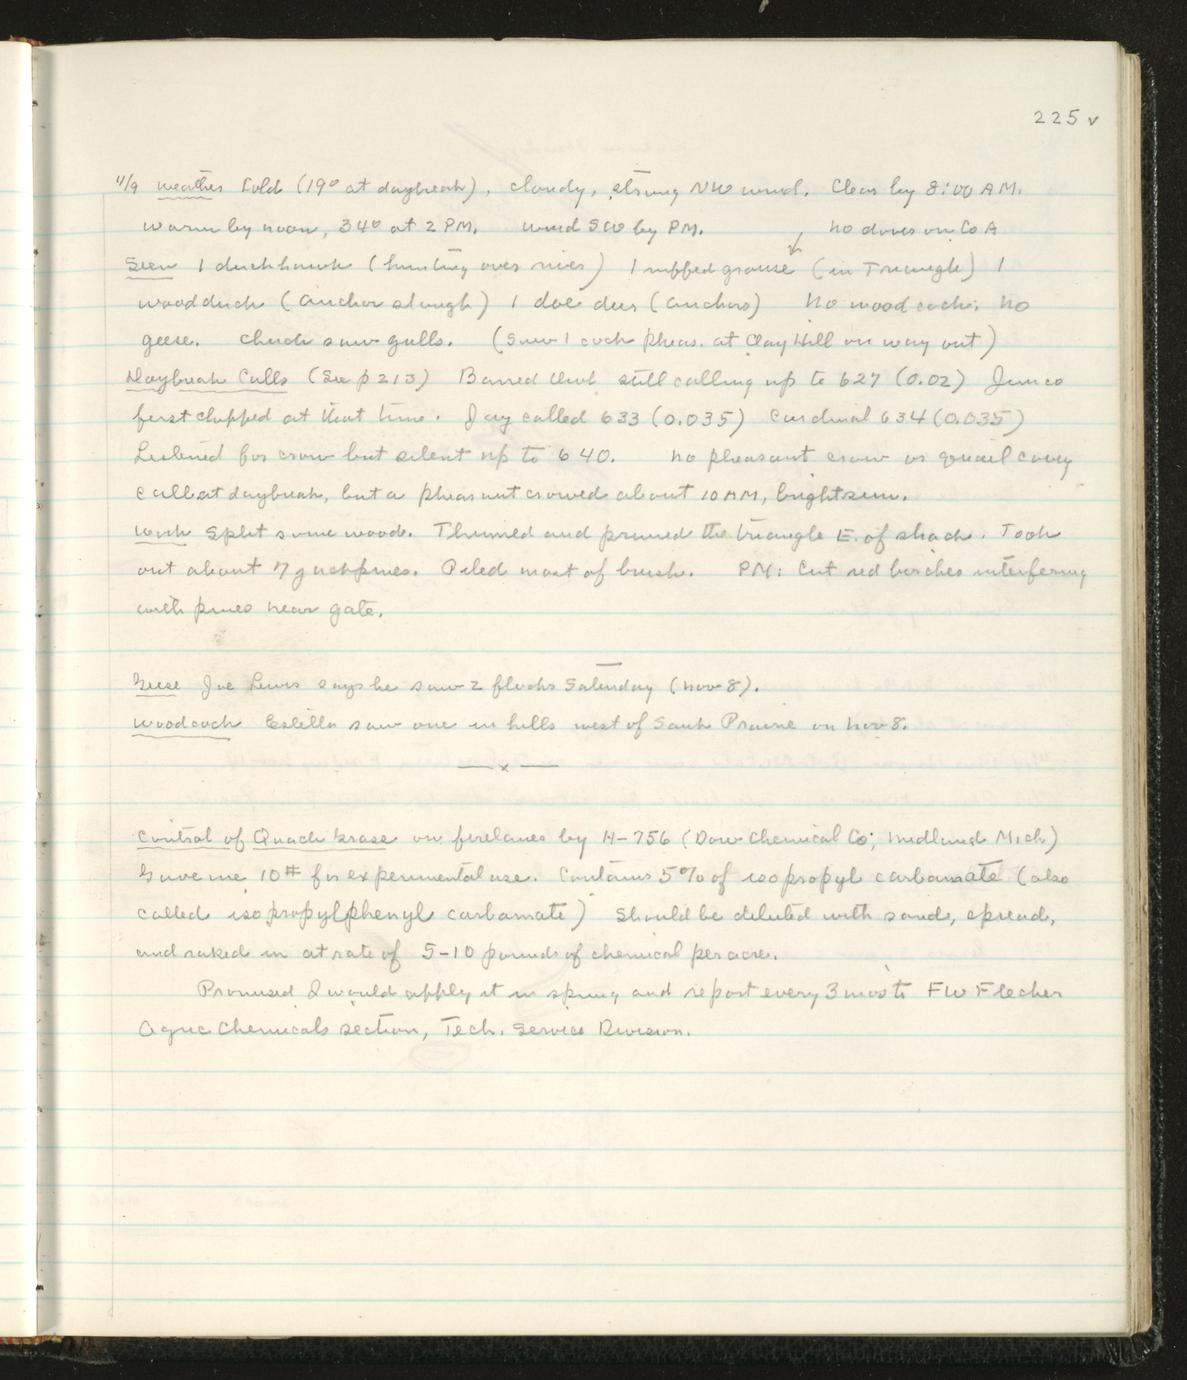 225 v
11/9 Weather Cold (19° at daybreak), cloudy, strong NW wind. Clear by 8:00 AM.
Warm by noon, 34° at 2 PM. Wind SW by PM. No doves on Co A
Seen 1 duckhawk (hunting over river) 1 ruffed grouse (in Triangle) 1
woodduck (anchor slough) 1 doe deer (anchors) No woodcock. No
geese. Chuck saw gulls. (Saw 1 cock pheas. at Clay Hill on way out)
Daybreak Calls (See p 213) Barred Owl still calling up to 627 (0.02) Junco
first chipped at that time. Jay called 633 (0.035) Cardinal 634 (0.035)
Listened for crow but silent up to 640. No pheasant crow or quail covey
call at daybreak, but a pheasant crowed about 10 AM, bright sun.
Work Split some wood. Thinned and pruned the triangle E. of shack. Took
out about 7 jackpines. Piled most of brush. PM: Cut red birches interfering
with pines near gate.
Geese Joe Lewis says he saw 2 flocks Saturday (Nov 8).
Woodcock Estella saw one in hills west of Sauk Prairie on Nov 8.
—x—
Control of Quack Grass on firelanes by H-756 (Dow Chemical Co; Midland Mich)
Gave me 10# for experimental use. Contains 5% of isopropyl carbamate (also
called isopropylphenyl carbamate) Should be diluted with sand, spread,
and raked in at rate of 5-10 pounds of chemical per acre.
Promised I would apply it in spring and report every 3 mos to FW Flecher
Agric Chemicals section, Tech. Service Division.